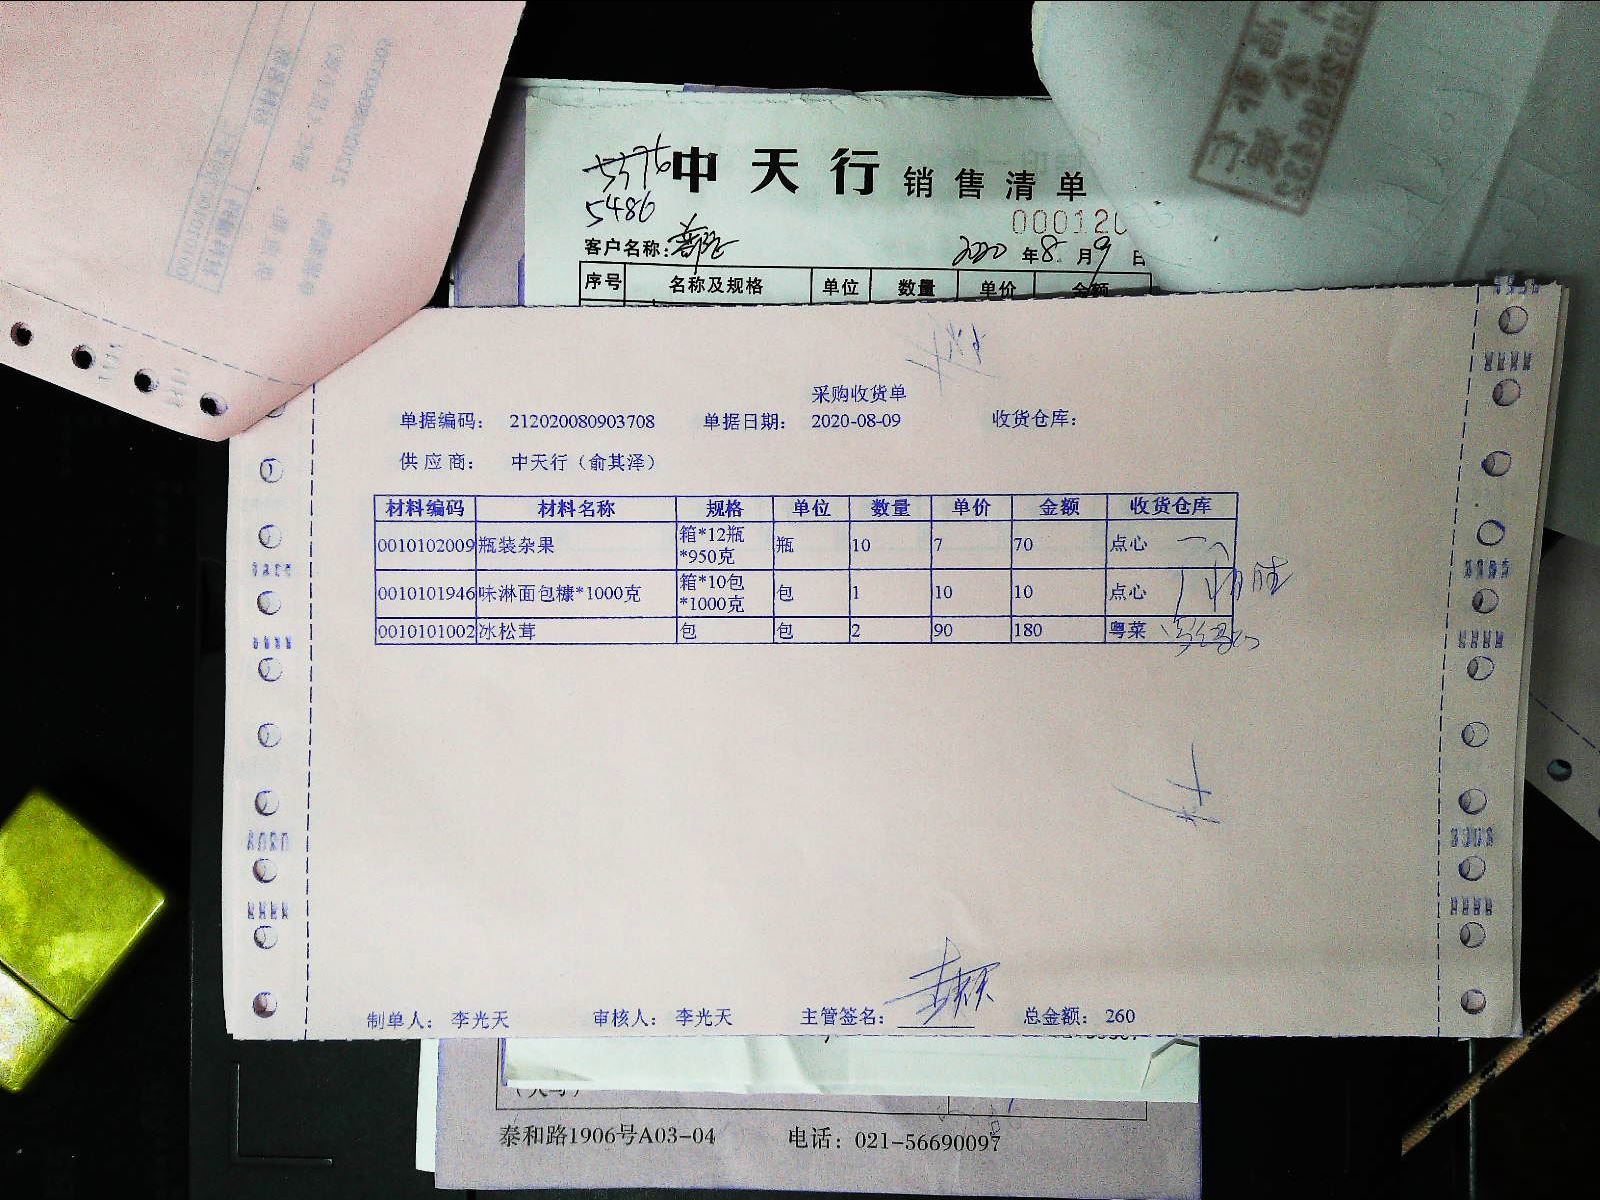 5376
5486
中天行 销售清单
000120
客户名称:
2020年8月9日
序号 名称及规格 单位 数量 单价 金额
采购收货单
单据编码: 212020080903708 单据日期: 2020-08-09 收货仓库:
供应商: 中天行（俞其泽）
材料编码 材料名称 规格 单位 数量 单价 金额 收货仓库
0010102009 瓶装杂果 箱*12瓶*950克 瓶 10 7 70 点心
0010101946 味淋面包糠*1000克 箱*10包*1000克 包 1 10 10 点心
0010101002 冰松茸 包 包 2 90 180 粤菜
制单人: 李光天 审核人: 李光天 主管签名: 总金额: 260
泰和路1906号A03-04 电话: 021-56690097